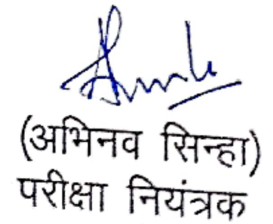 (अभिनव सिन्हा)
परीक्षा नियंत्रक